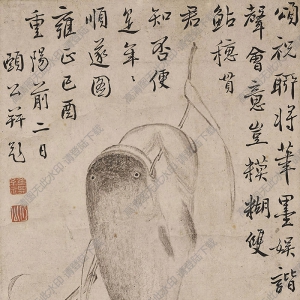 頌祝聊將筆墨娱諧
聲會意豈模糊雙
鮎穗貫
君
知否便
是年年
順遂圖
雍正己酉
重陽前二日
頤公并題